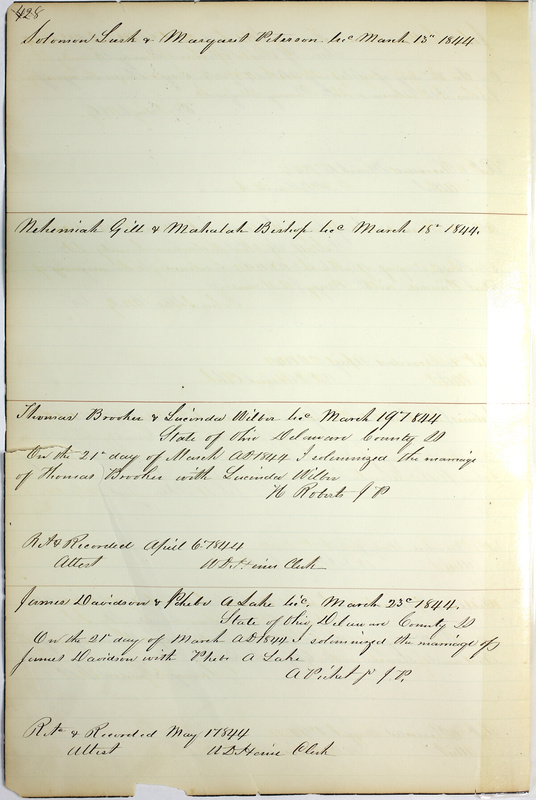 428
Solomon Lusk & Margaret Peterson Lic March 15" 1844
Nehemiah Gill & Mahalah Bishop Lic March 18" 1844.
Thomas Brooker & Lucinda Wilbor Lic March 19" 1844
State of Ohio Delaware County SS
On the 21" day of March AD 1844 I solemnized the marriage
of Thomas Brooker with Lucinda Wilbor
Roberts J P
Ret & Recorded April 6" 1844
Attest Clerk
James Davidson & Phebe A Lake Lic. March 23" 1844.
State of Ohio, Delaware County SS
On the 21" day of March AD 1844 I solemnized the marriage of
James Davidson with Phebe A Lake
A Picket J. P.
Ret & Recorded May 1" 1844
Attest Clerk